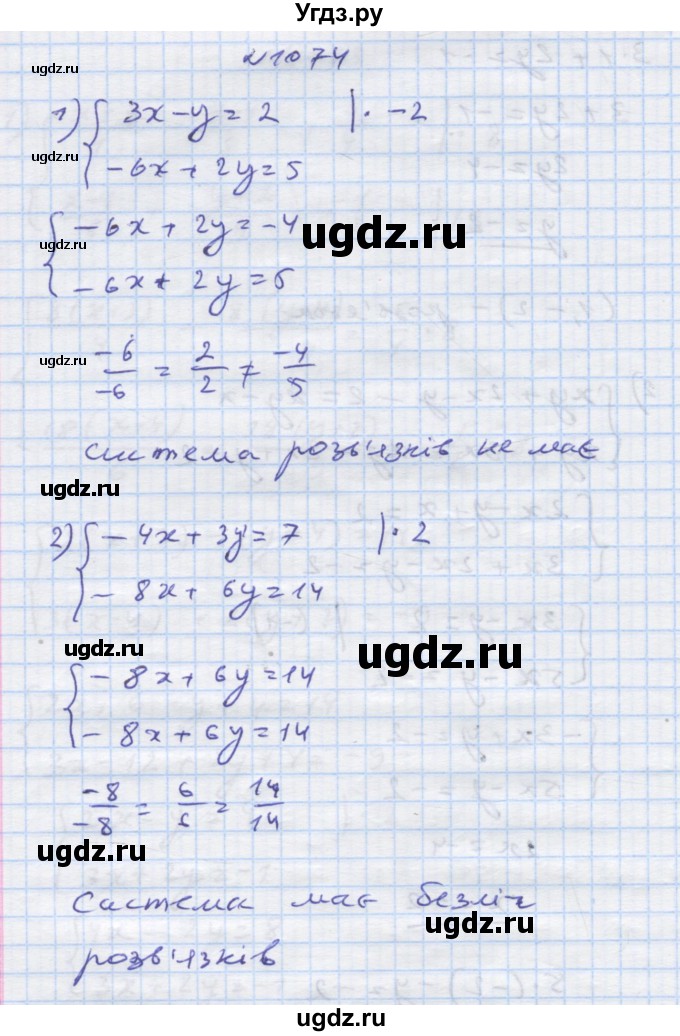 Угдз.ру
ugdz.ru
№1074
1) { 3x - y = 2 | · -2
ugdz.ru
- 6x + 2y = 5
{ - 6x + 2y = -4
ugdz.ru
ugdz.ru
- 6x + 2y = 5
ugdz.ru
-6/-6 = 2/2 ≠ -4/5
система розв'язків не має
ugdz.ru
2) { - 4x + 3y = 7 | · 2
- 8x + 6y = 14
ugdz.ru
ugdz.ru
{ - 8x + 6y = 14
- 8x + 6y = 14
-8/-8 = 6/6 = 14/14
ugdz.ru
Система має безліч
ugdz.ru
розв'язків
ugdz.ru